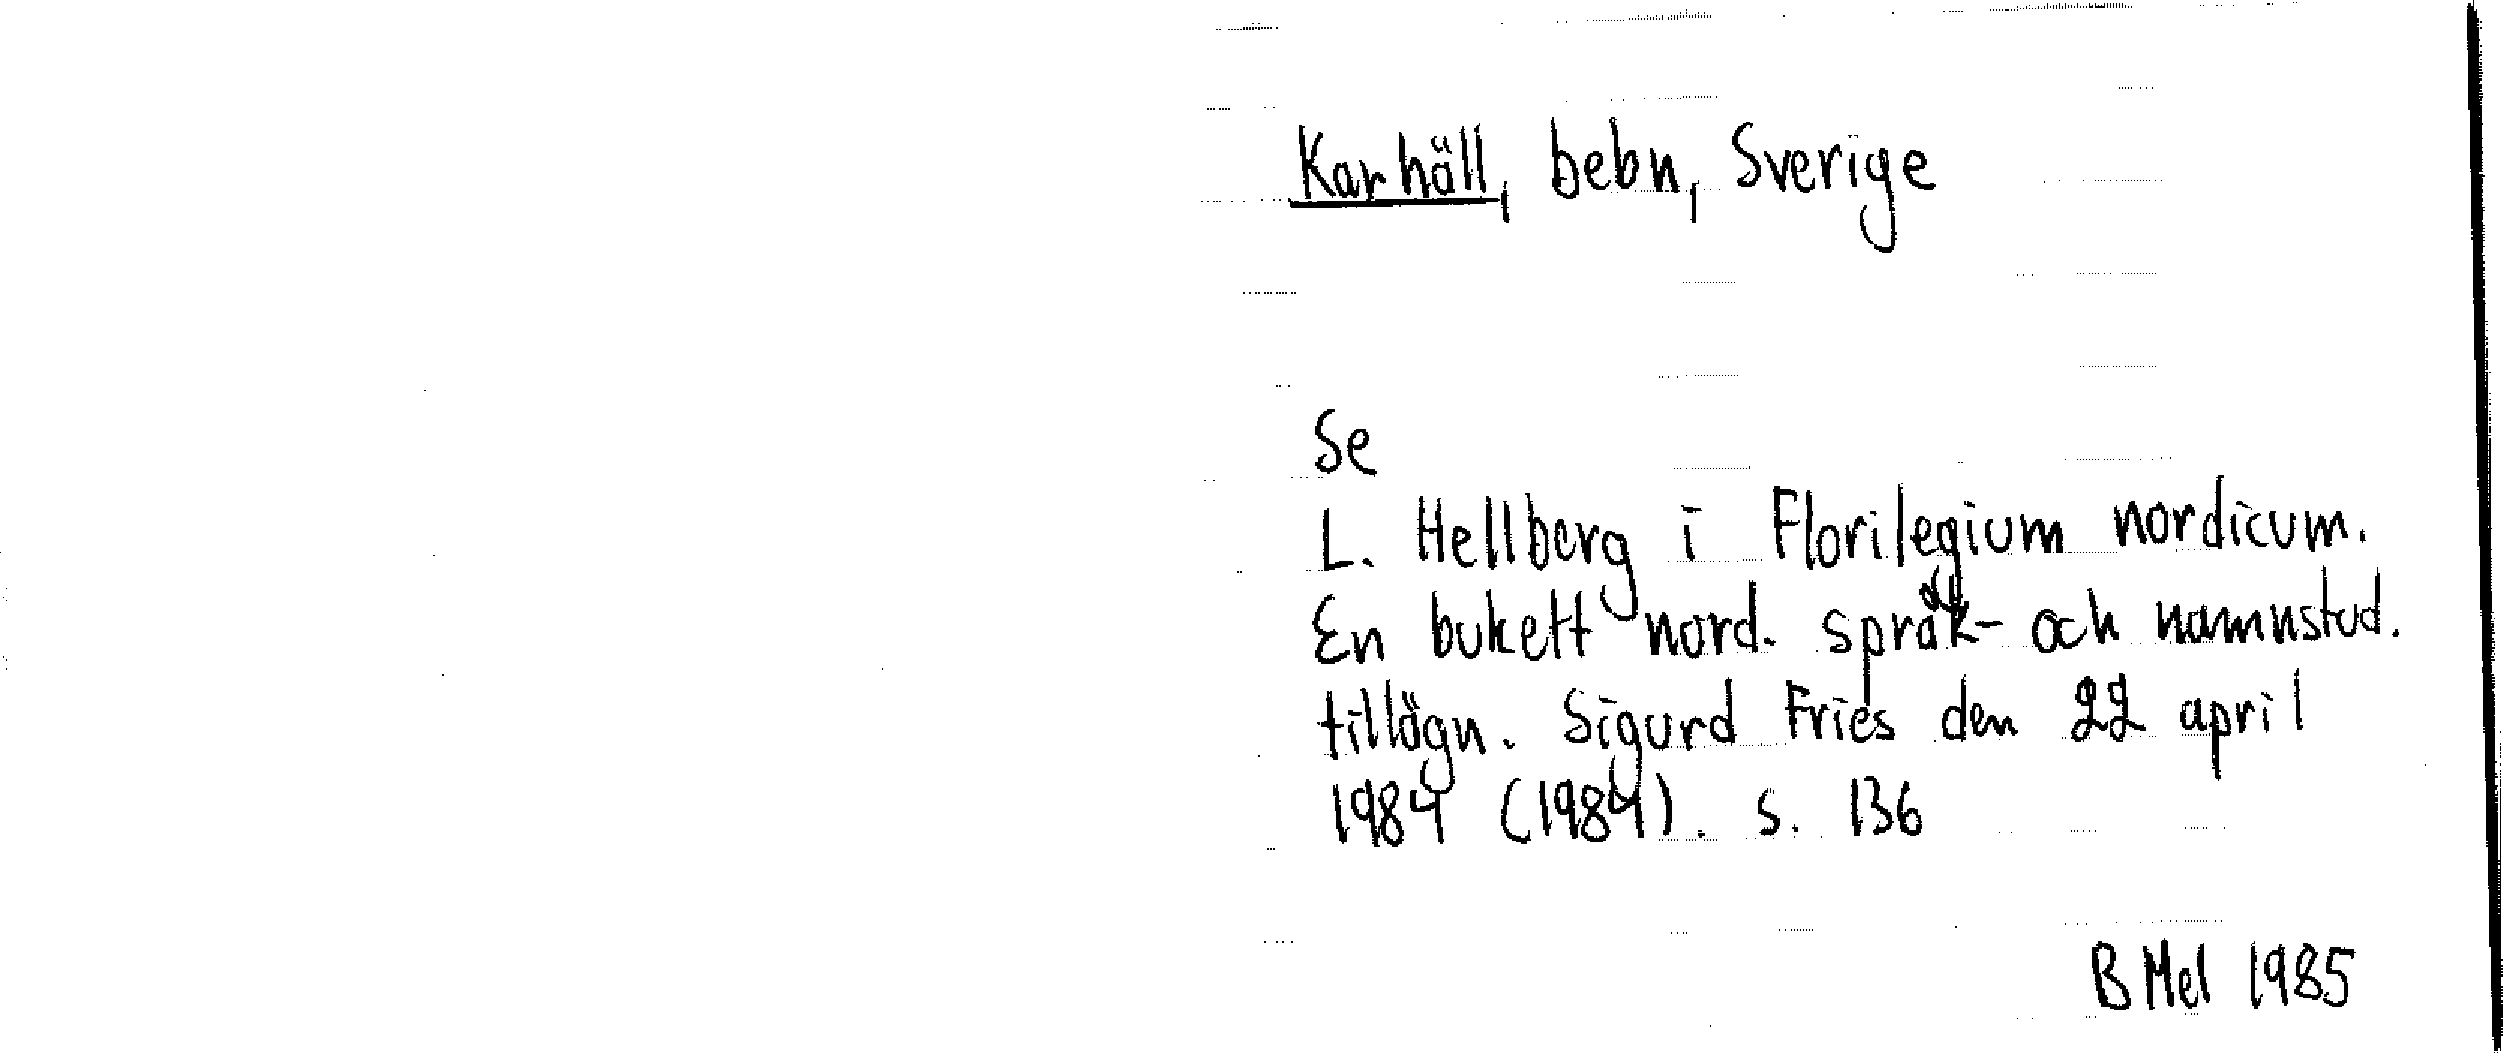 Karhäll, bebn, Sverige
Se
L. Hellberg i Florilegium nordicum.
En bukett nord. språk- och namnstud.
tillägn. Sigurd Fries den 22 april
1984 (1984). s. 136
B Mel 1985